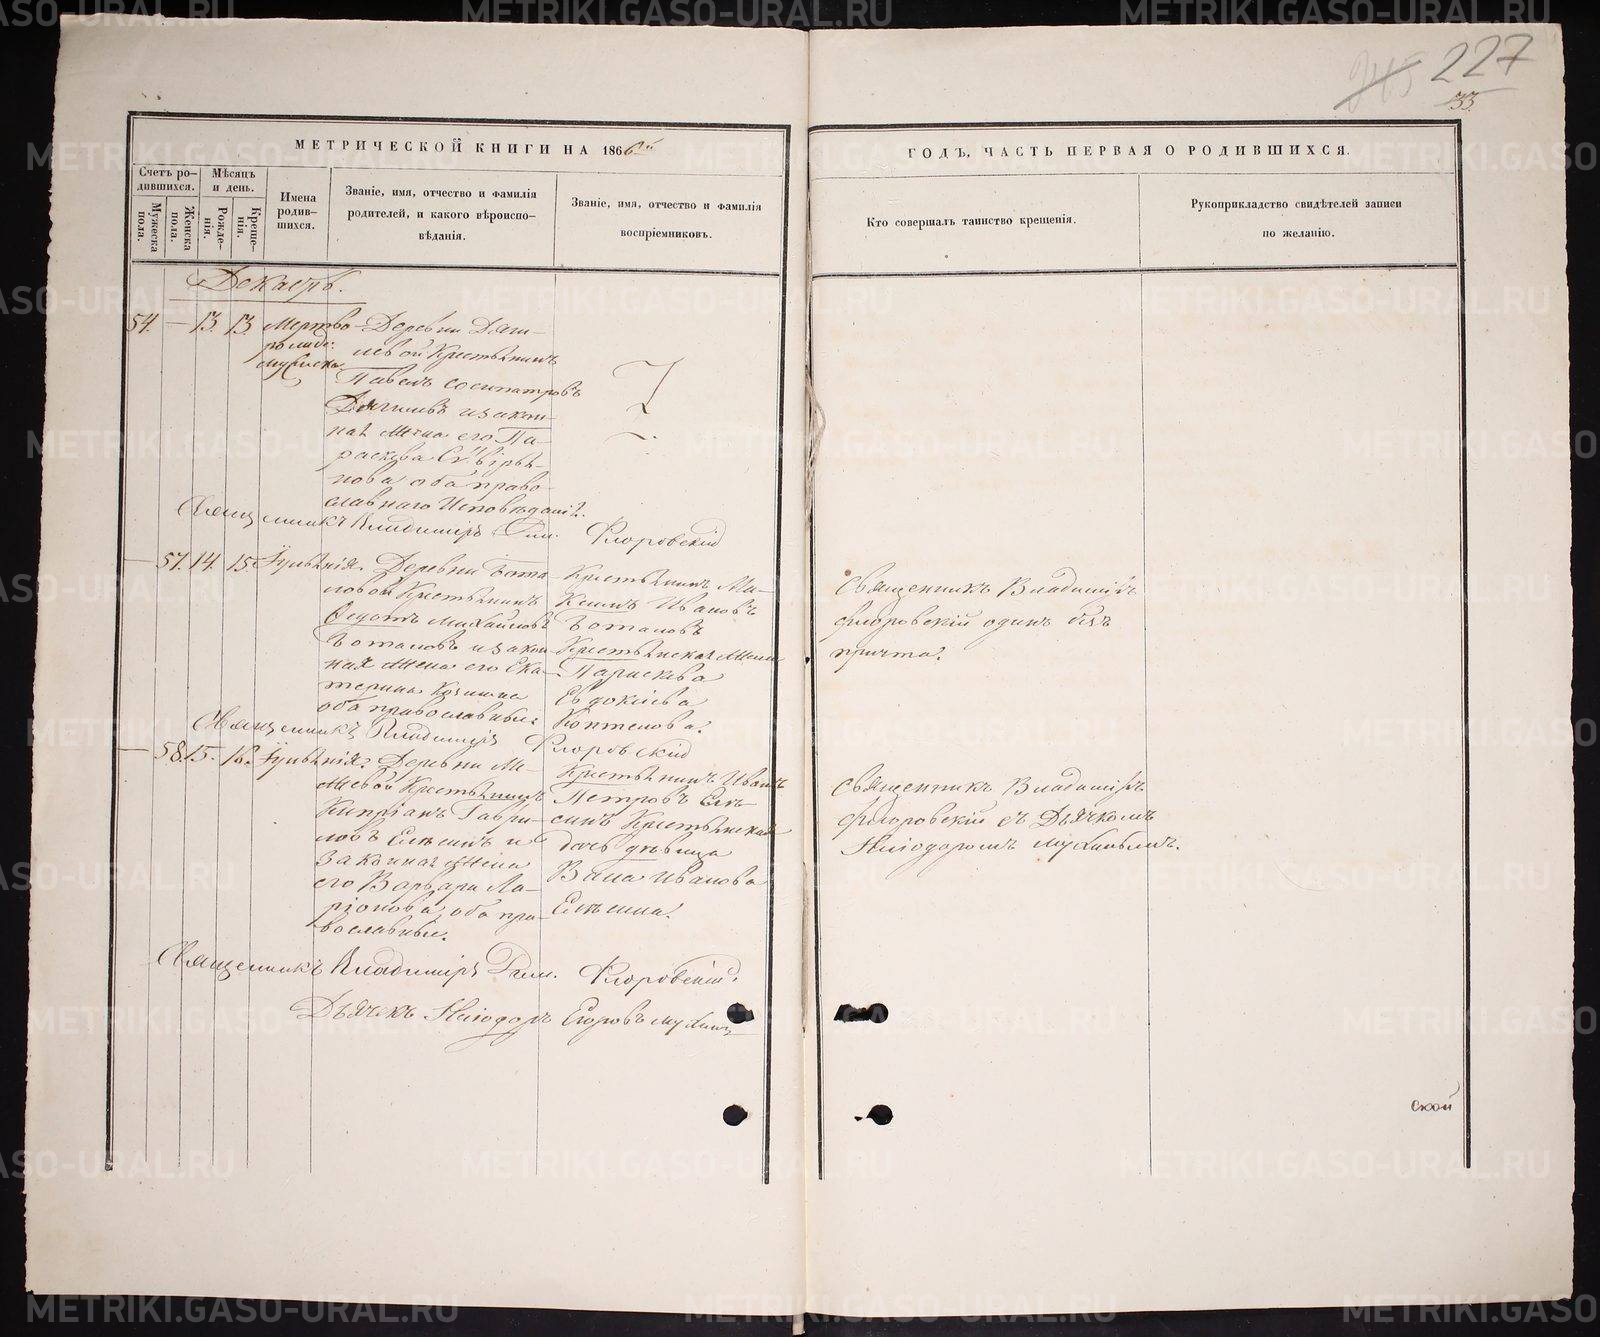 227
33
МЕТРИЧЕСКОЙ КНИГИ НА 1866й
ГОДЪ, ЧАСТЬ ПЕРВАЯ О РОДИВШИХСЯ.
Счетъ ро-
дившихся.
Мужеска
пола.
Женска
пола.
Мѣсяцъ
и день.
Рожде-
нія.
Креще-
нія.
Имена
родив-
шихся.
Званіе, имя, отчество и фамилія
родителей, и какого вѣроиспо-
вѣданія.
Званіе, имя, отчество и фамилія
воспріемниковъ.
Кто совершалъ таинство крещенія.
Рукоприкладство свидѣтелей записи
по желанію.
Декабрь.
54. — 13. 13. Мертво-
рожде:
мужеска
Деревни Дяги-
левой Крестьянинъ
Павелъ Сосипатровъ
Дягилевъ и закон-
ная жена его Па-
раскева
оба право-
славнаго Исповѣданія.
Священникъ Владиміръ Флоровскій
— 57. 14. 15. Іуліанія.
Деревни Бота-
ловой Крестьянинъ
Федотъ Михайловъ
Боталовъ и закон-
ная жена его Ека-
терина Козмина
оба православные.
Крестьянинъ
Ивановъ
Боталовъ
Крестьянская жена
Параскева
Евдокіева
Коптелова.
Священникъ Владиміръ
Флоровскій одинъ безъ
причта.
Священникъ Владиміръ Флоровскій
— 58. 15. 16. Іуліанія.
Деревни
Крестьянинъ
Кипріанъ Гаври-
ловъ Елькинъ и
законная жена
его Варвара Ла-
ріонова, оба пра-
вославные.
Крестьянинъ Иванъ
Петровъ Ель-
кинъ Крестьянская
дочь дѣвица
Ивановна
Елькина.
Священникъ Владиміръ
Флоровскій съ Дьячкомъ
Иліодоромъ Мухинымъ.
Священникъ Владиміръ Флоровскій.
Дьячекъ Иліодоръ Егоровъ Мухинъ
ской
METRIKI.GASO-URAL.RU